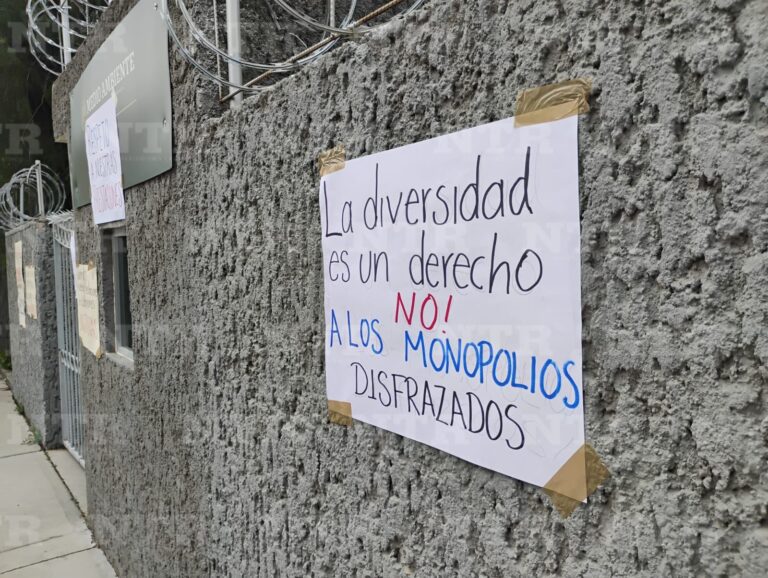 MEDIO AMBIENTE
RESPETO
A NUESTRAS
La diversidad
es un derecho
NO!
A LOS MONOPOLIOS
DISFRAZADOS
NTR